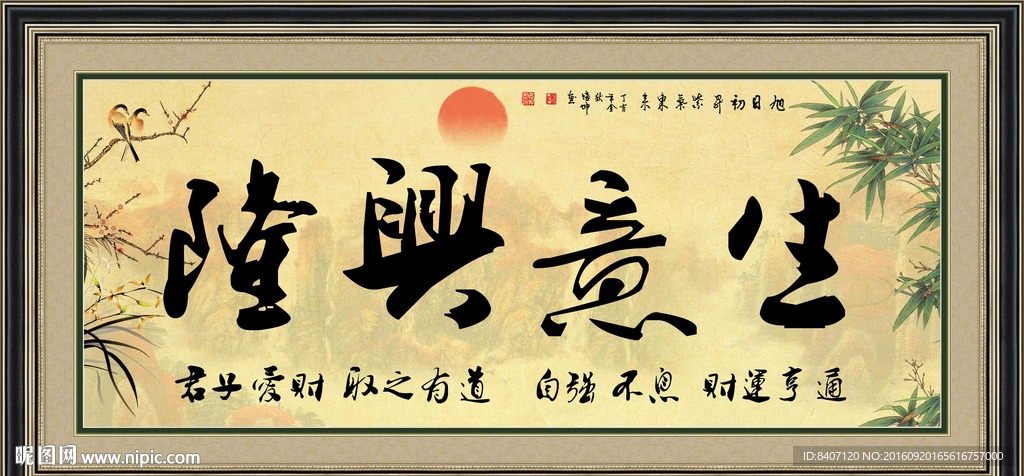 旭日初昇紫氣東來
丁亥年金秋
生意興隆
君子愛財 取之有道 自强不息 財運亨通
昵图网 www.nipic.com
ID:8407120 NO:20160920165616757000